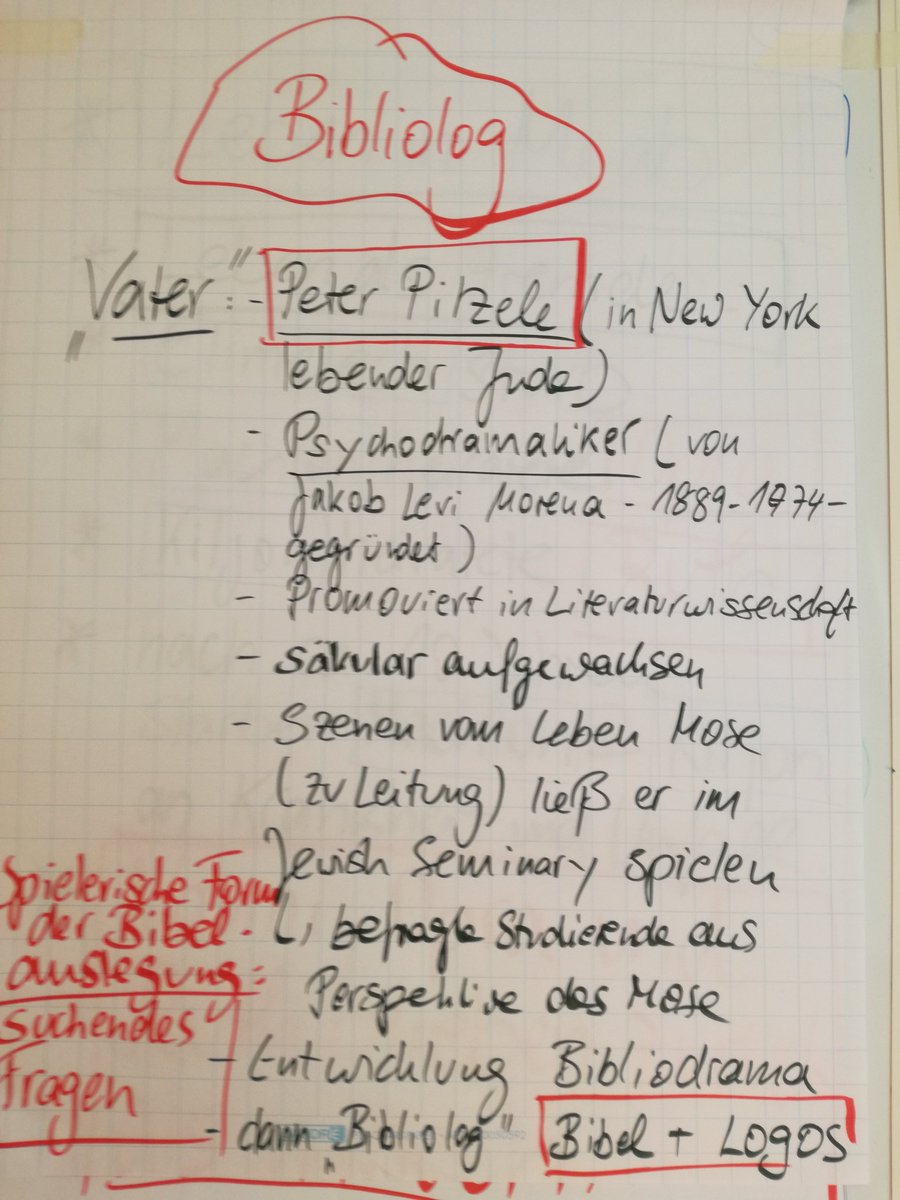 Bibliolog
"Vater": - Peter Pitzele (in New York
lebender Jude)
- Psychodramatiker (von
Jakob Levi Morena - 1889-1974-
gegründet)
- Promoviert in Literaturwissenschaft
- säkular aufgewachsen
- Szenen vom Leben Mose
(zu Leitung) ließ er im
Jewish Seminary spielen
↳ befragte Studierende aus
Perspektive des Mose
- Entwicklung Bibliodrama
- dann „Bibliolog" Bibel + Logos
Spielerische Form
der Bibel-
auslegung:
suchendes
Fragen